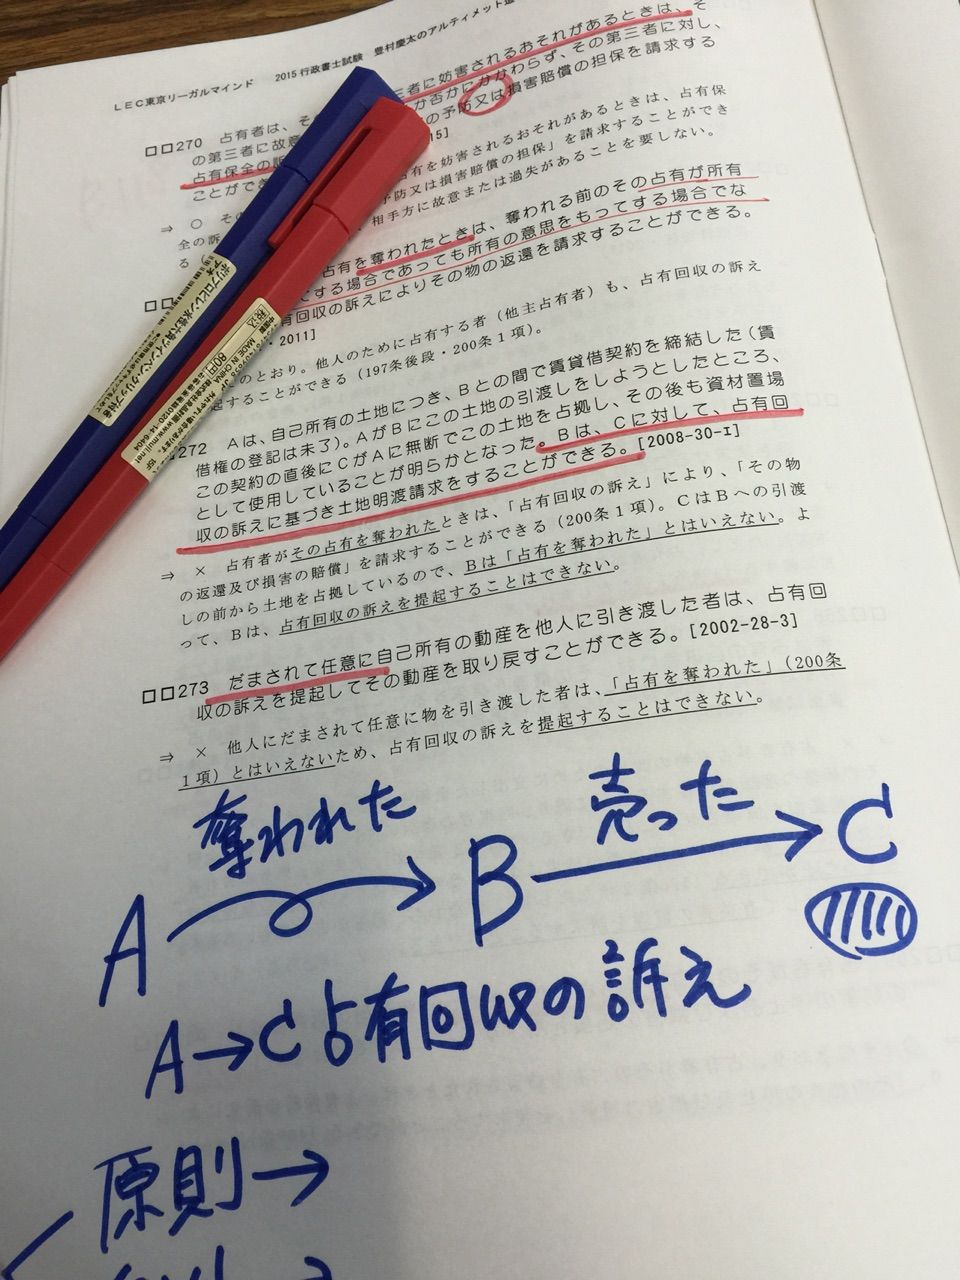 LEC東京リーガルマインド 2015 行政書士試験 豊村慶太のアルティメット
三者に妨害されるおそれがあるときは、そ
□□270 占有者は、そ か否かにかかわらず、その第三者に対し、
の第三者に故意 の予防又は損害賠償の担保を請求する
占有保全の訴 15]
ことができ 有を妨害されるおそれがあるときは、占有保
⇒ ○ そ 予防又は損害賠償の担保」を請求することができ
全の訴 相手方に故意または過失があることを要しない。
る
占有を奪われたときは、奪われる前のその占有が所有
する場合であっても所有の意思をもってする場合でな
有回収の訴えによりその物の返還を請求することができる。
2011]
のとおり。他人のために占有する者（他主占有者）も、占有回収の訴え
起することができる（197条後段・200条1項）。
272 Aは、自己所有の土地につき、Bとの間で賃貸借契約を締結した（賃
借権の登記は未了）。AがBにこの土地の引渡しをしようとしたところ、
この契約の直後にCがAに無断でこの土地を占拠し、その後も資材置場
として使用していることが明らかとなった。Bは、Cに対して、占有回
収の訴えに基づき土地明渡請求をすることができる。[2008-30-I]
⇒ × 占有者がその占有を奪われたときは、「占有回収の訴え」により、「その物
の返還及び損害の賠償」を請求することができる（200条1項）。CはBへの引渡
しの前から土地を占拠しているので、Bは「占有を奪われた」とはいえない。よ
って、Bは、占有回収の訴えを提起することはできない。
□□273 だまされて任意に自己所有の動産を他人に引き渡した者は、占有回
収の訴えを提起してその動産を取り戻すことができる。[2002-28-3]
⇒ × 他人にだまされて任意に物を引き渡した者は、「占有を奪われた」（200条
1項）とはいえないため、占有回収の訴えを提起することはできない。
奪われた 売った
A B → C
A→C 占有回収の訴え
原則→
ポリプロピレン水性六角ツインペン・クリップ付き
税込
80円
MADE IN CHINA
www.muji.net